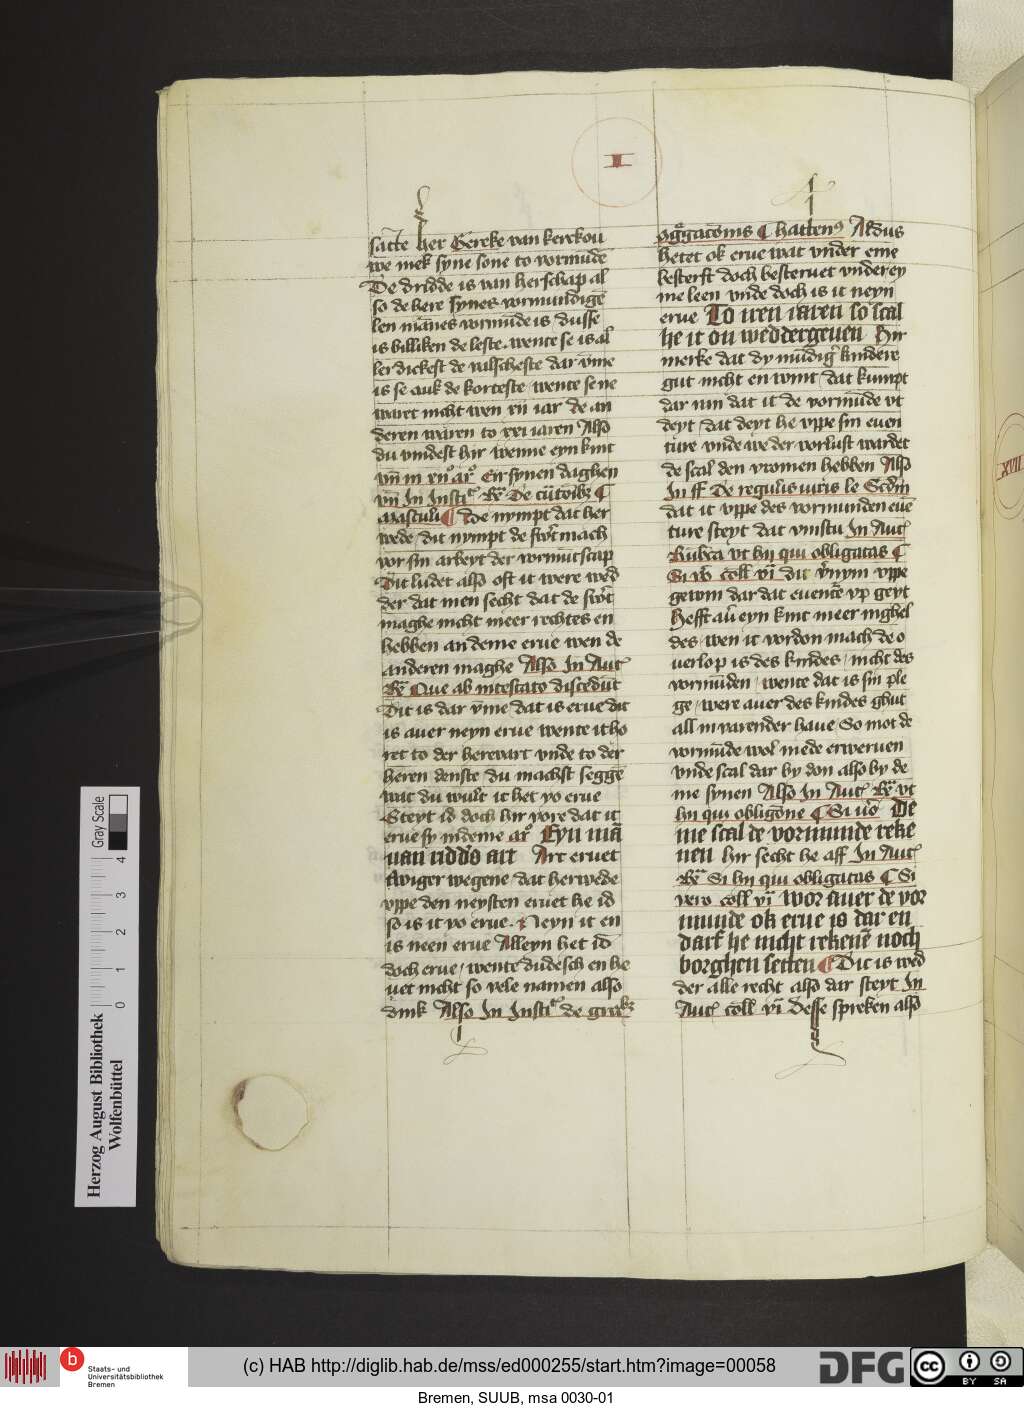 I
satte her Gereke van kerckou
we mek syne sone to vormūde
De dridde is van herschap al
so de here synes vormundigē
len mānes vormūde is / dusse
is billiken de leste. wente se is al
ler dickest de valscheste dar ūme
is se auk de korteste / wente se ne
waret nicht wen xii iar de an
deren waren to xxi iaren Also
du vindest hir wenne eyn kint
Er synen daghen
nympt dat her
wede / dit nympt de swert mach
vor sin arbeyt der vormuntscap
Dit ludet also oft it were wed
der dat men secht dat de swert
maghe nicht meer rechtes en
hebben an deme erue wen de
anderen maghe Also In Aut
Que ab intestato discedūt
Dit is dar ūme / dat is erue dit
is auer neyn erue wente it ho
ret to der herewart vnde to der
heren denste du machst seggē
wat du wult it het yo erue
Steyt id doch hir vore dat it
erue sy in deme Eyn mā
van ridders art Art eruet
wegene / dat herwede
vppe den neysten eruet he id
so is it yo erue. Neyn it en
is neen erue Alleyn het id
doch erue / wente dudesch en he
uet nicht so vele namen also
dink Also In Insti de
Aldus
hetet ok erue wat vnder eme
besterft doch besteruet vnder ey
me leen vnde doch is it neyn
erue To iren iaren so scal
he it on weddergeuen Hir
merke dat dy mūdige kindere
gut nicht en wint / dat kumpt
dar van dat it de vormūde vt
deyt / dat deyt he vppe sin euen
ture vnde we der vorlust wardet
de scal den vromen hebben Also
In ff De regulis iuris le Scdm
dat it vppe des vormunden euē
ture steyt dat vinstu In Aut
Rubca vt hij qui obligatas ¶
Si vero coll vi dit vppe
gewin dar dat euentē vp geyt
Hefft auer eyn kint meer inghel
des wen it vordon mach de o
uerlop is des kindes / nicht des
vormūden / wente dat is sin ple
ge / were auer des kindes ghut
all in varender haue / So mot de
vormūde wol mede erweruen
vnde scal dar by don also by de
me synen Also In Aut Re vt
hij qui obligōne ¶ Si vero De
me scal de vormunde reke
nen hir secht he aff In Aut
Re Si hij qui obligatas ¶ Si
vero coll vi Wor auer de vor
munde ok erue is dar en
darf he nicht rekenē noch
borghen setten ¶ Dit is wed
der alle recht also dar steyt In
Aut coll vi Desse spreken also
XVII
Gray Scale
0 1 2 3 4
Herzog August Bibliothek
Wolfenbüttel
b
Staats- und
Universitätsbibliothek
Bremen
(c) HAB http://diglib.hab.de/mss/ed000255/start.htm?image=00058
DFG
cc BY SA
Bremen, SUUB, msa 0030-01